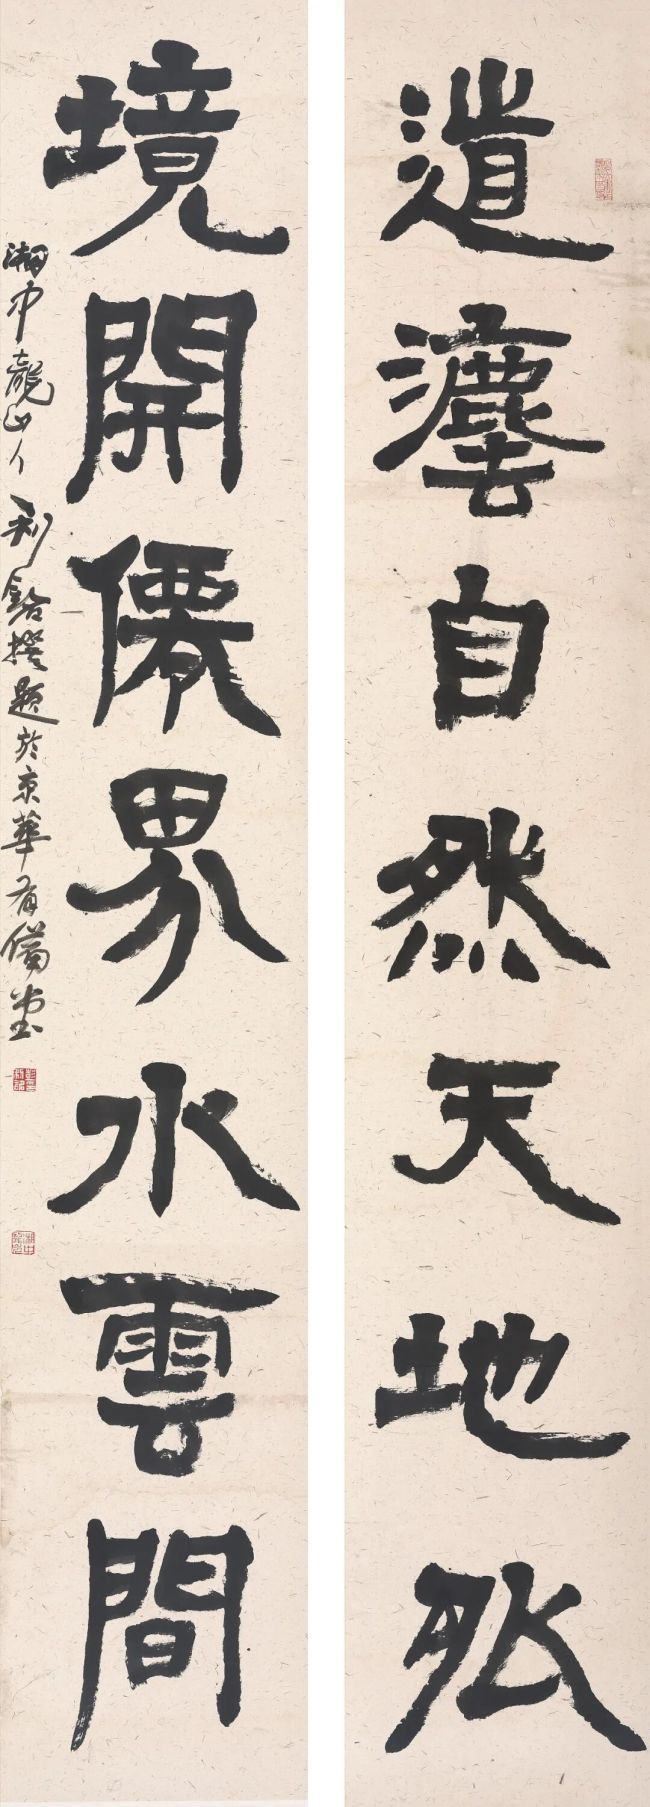 道灋自然天地外
境開僊界水雲間
湘中龍山人利銘撰題於京華有備堂